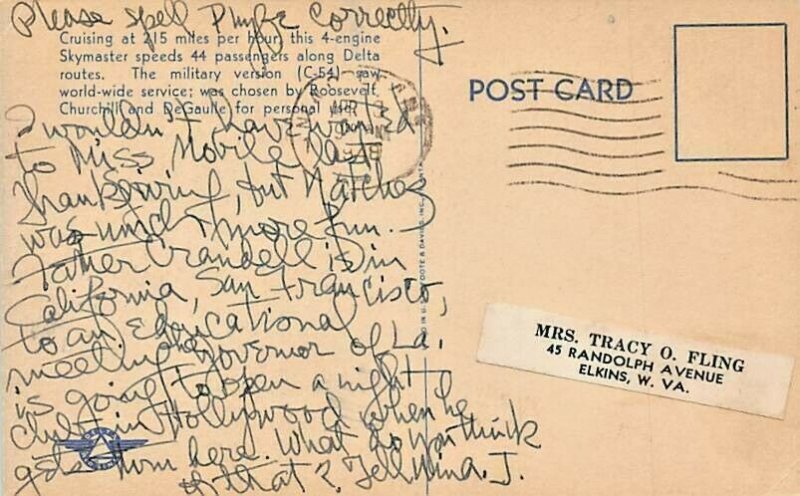 Please spell Phyfe correctly.
Cruising at 215 miles per hour, this 4-engine
Skymaster speeds 44 passengers along Delta
routes. The military version (C-54) saw
world-wide service; was chosen by Roosevelt,
Churchill and DeGaulle for personal use.
I wouldn't have wanted
to miss Mobile last
Thanksgiving, but Natchez
was much more fun.
Father Crandell is in
California, San Francisco,
to an Educational
meeting. The Governor of La.
is going to open a night
club in Hollywood when he
gets from here. What do you think
of that? Tell Nina. J.
POST CARD
MRS. TRACY O. FLING
45 RANDOLPH AVENUE
ELKINS, W. VA.